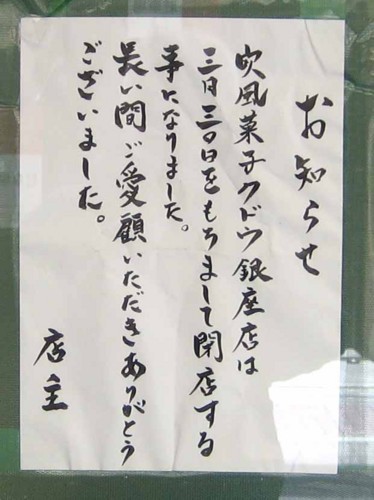 お知らせ
吹風菓子クドウ銀座店は
三月三〇日をもちまして閉店する
事になりました。
長い間ご愛顧いただきありがとう
ございました。
店主